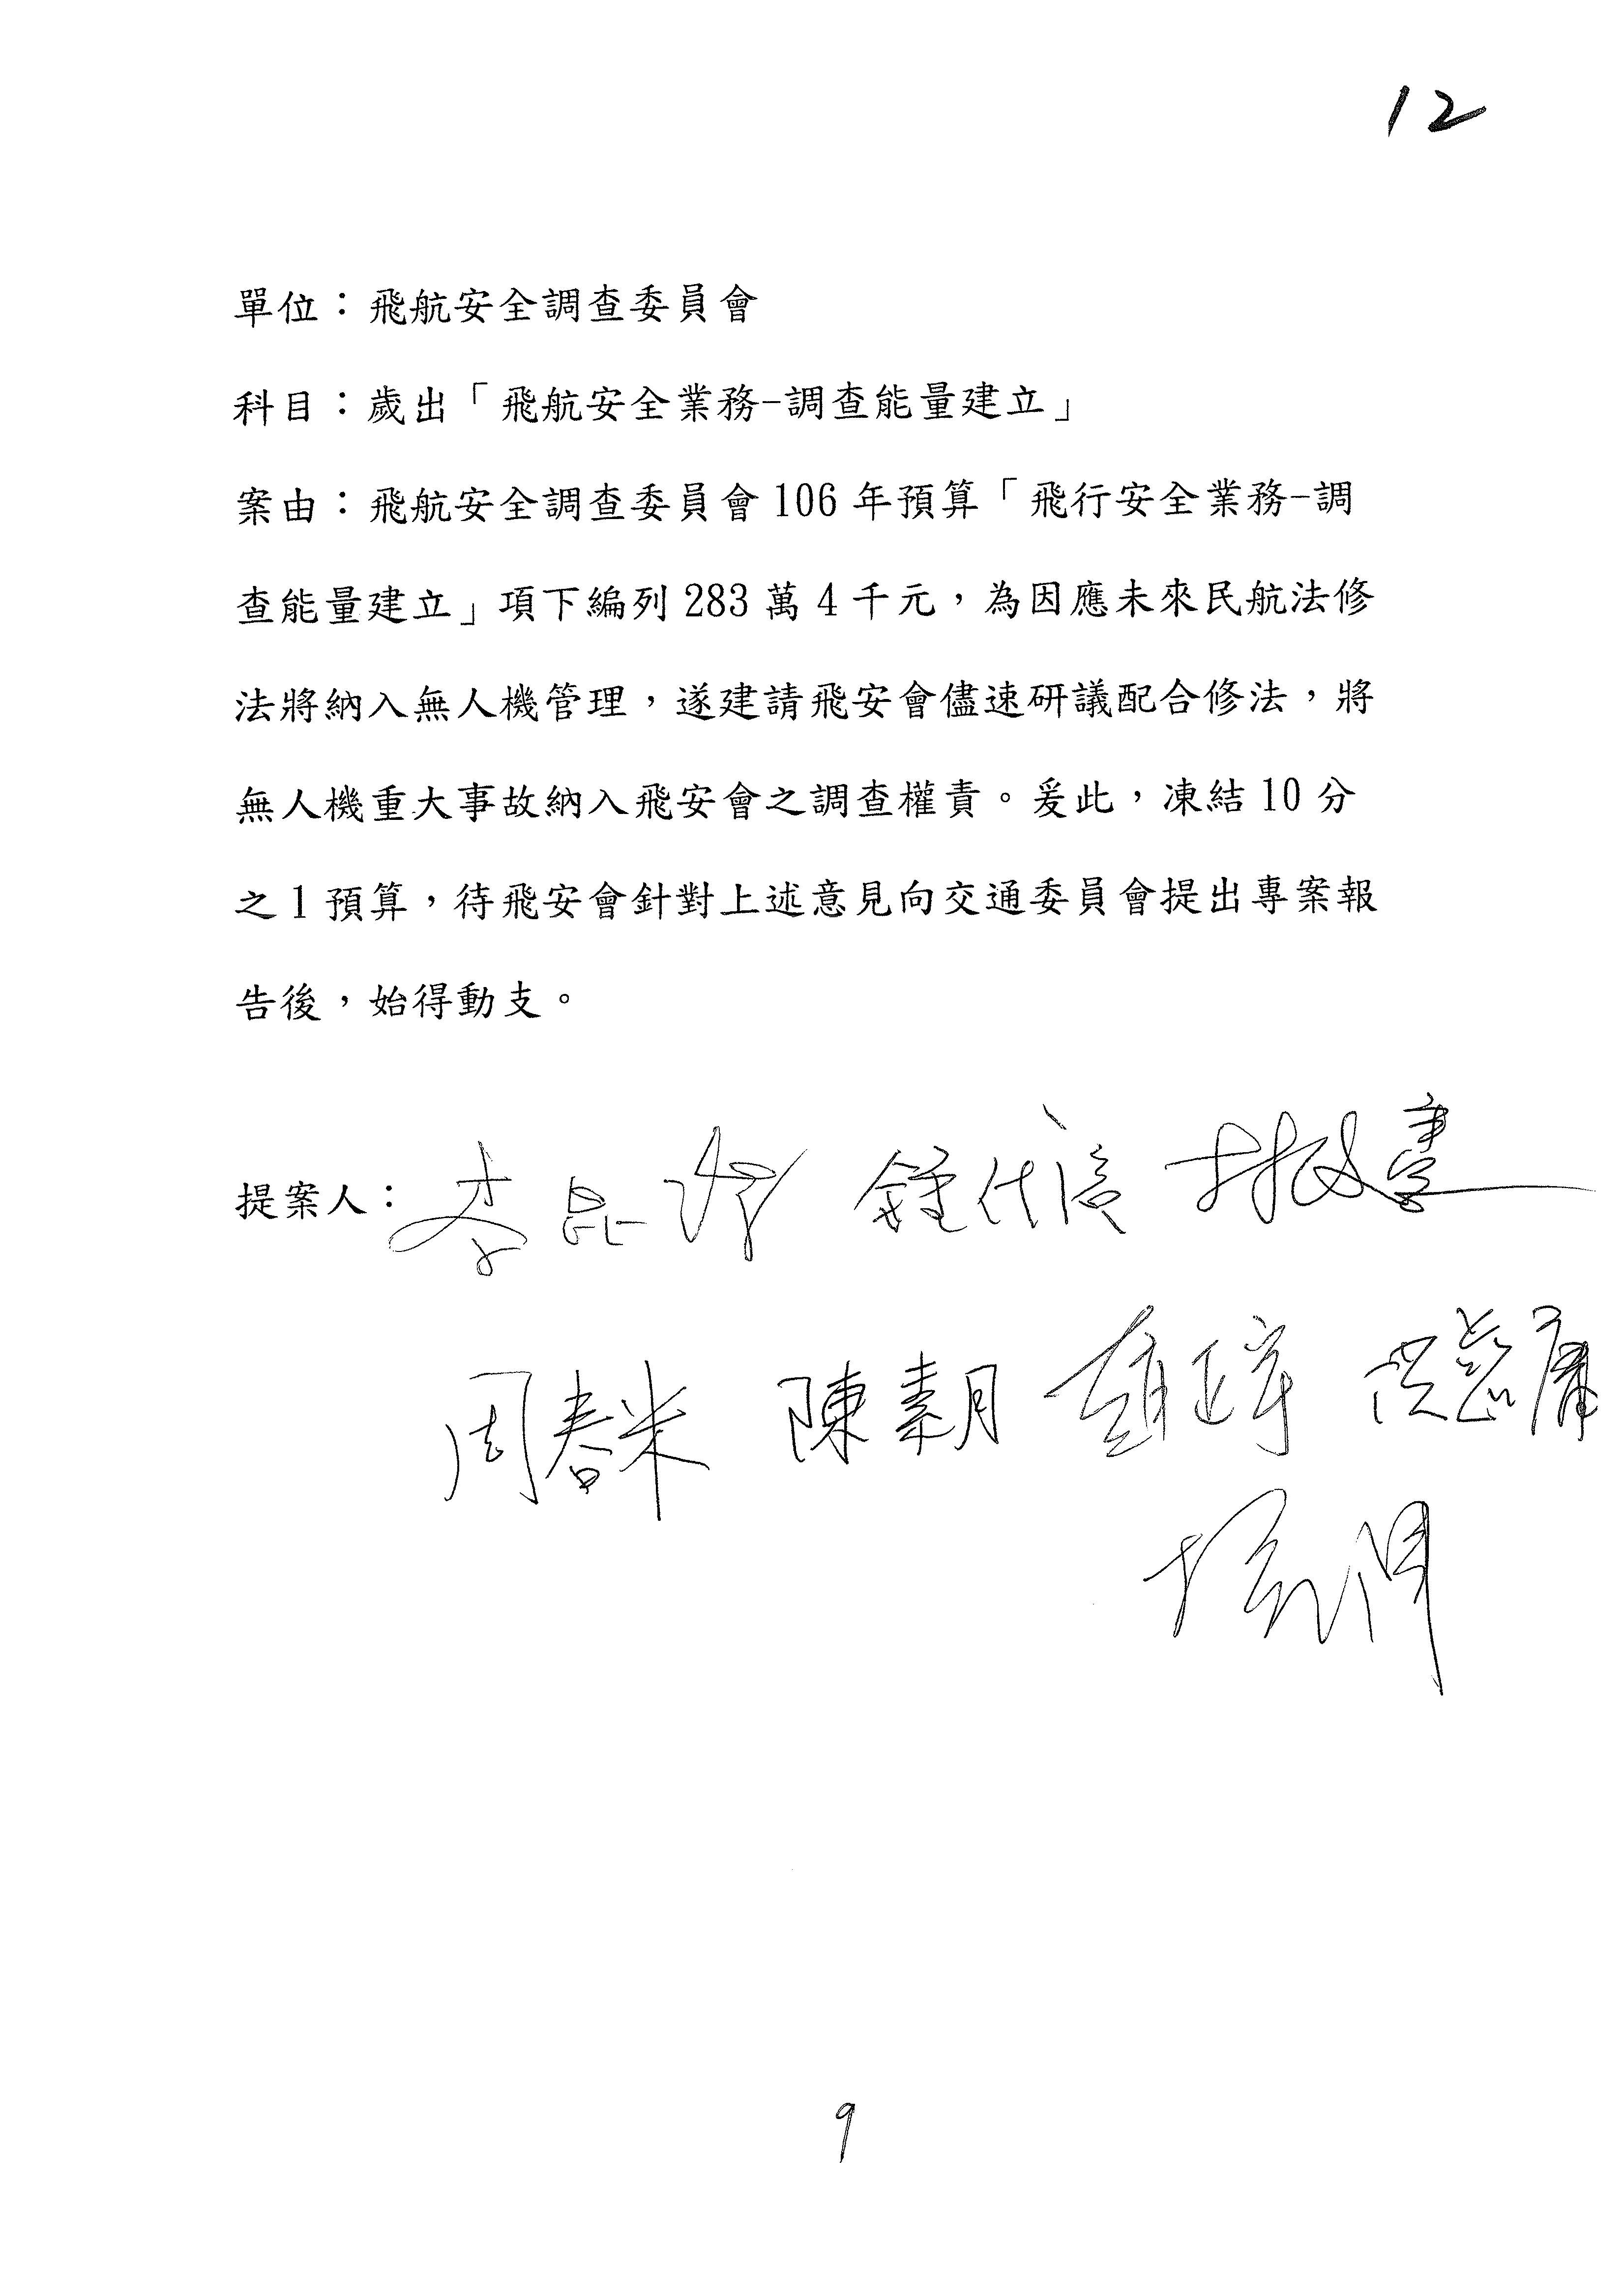 12
單位：飛航安全調查委員會
科目：歲出「飛航安全業務-調查能量建立」
案由：飛航安全調查委員會 106 年預算「飛行安全業務-調
查能量建立」項下編列 283 萬 4 千元，為因應未來民航法修
法將納入無人機管理，遂建請飛安會儘速研議配合修法，將
無人機重大事故納入飛安會之調查權責。爰此，凍結 10 分
之 1 預算，待飛安會針對上述意見向交通委員會提出專案報
告後，始得動支。
提案人：李昆澤 鍾佳濱
周春米 陳素月 鄭運鵬
9